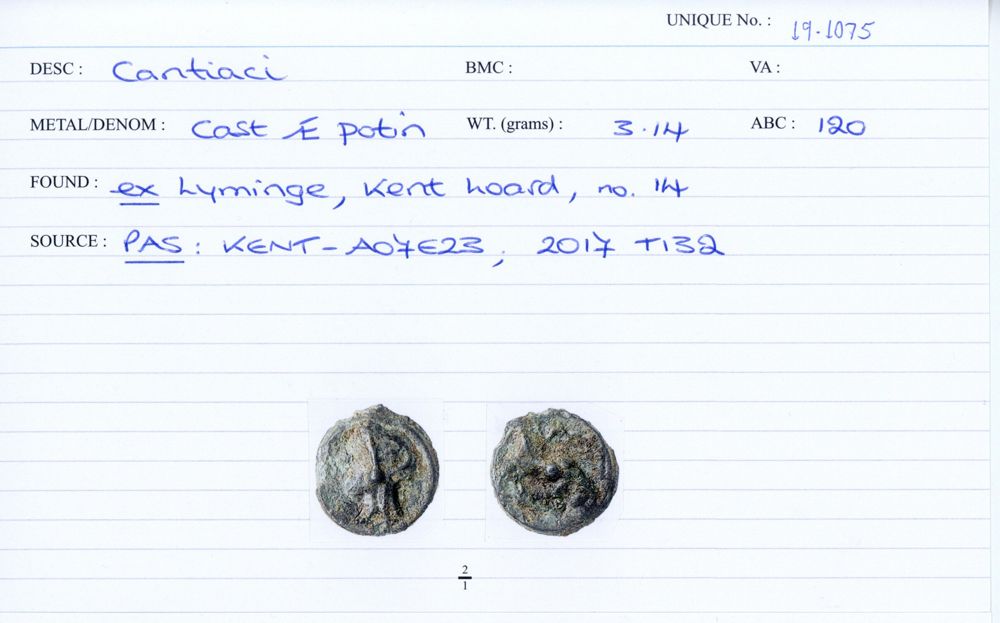 UNIQUE No. : 19.1075
DESC : Cantiaci BMC : VA :
METAL/DENOM : Cast Æ potin WT. (grams) : 3.14 ABC : 120
FOUND : ex Lyminge, Kent hoard, no. 14
SOURCE : PAS : KENT-A07E23, 2017 T132
2
1